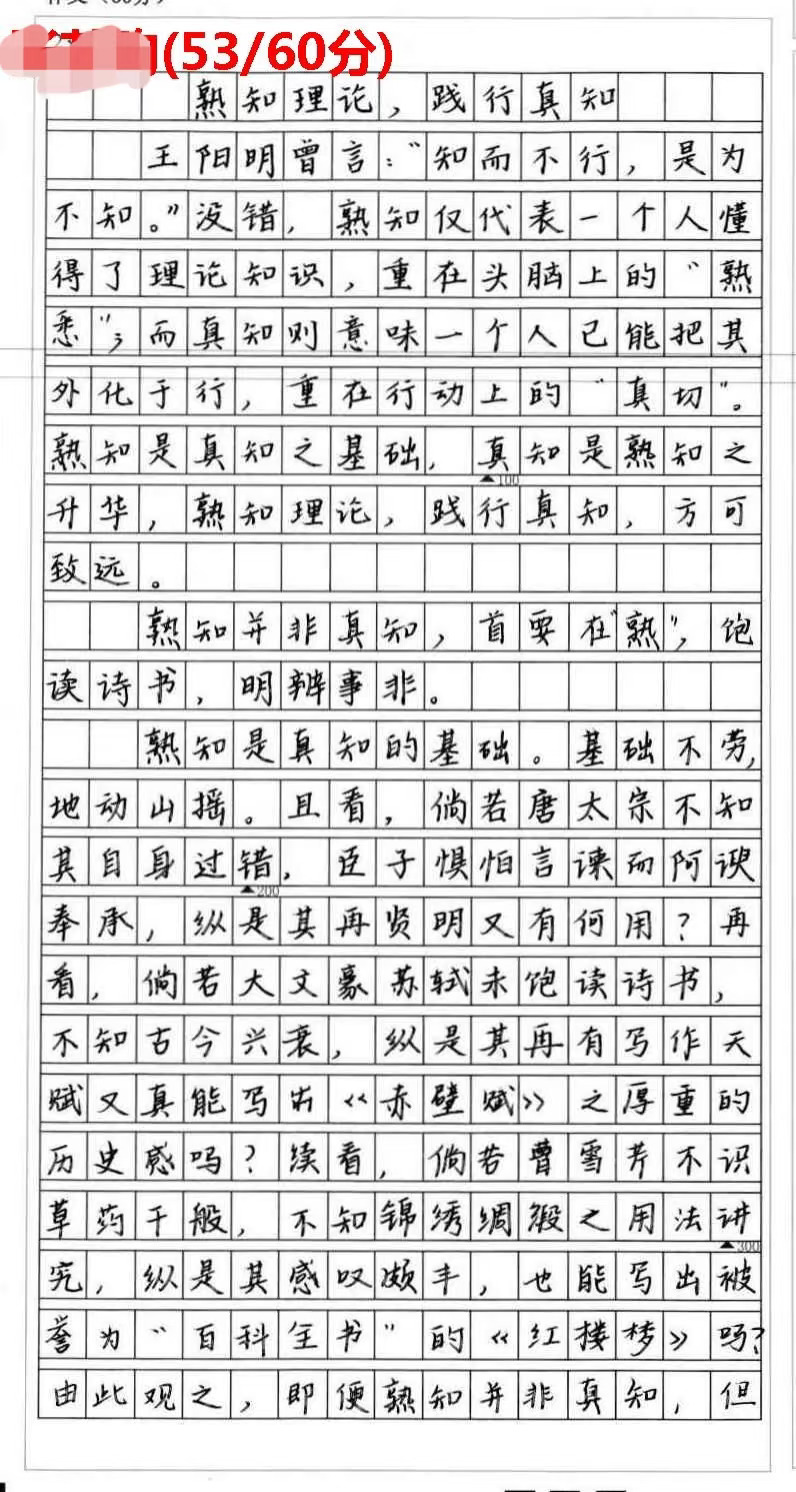 (53/60分)
熟知理论，践行真知
王阳明曾言：“知而不行，是为
不知。”没错，熟知仅代表一个人懂
得了理论知识，重在头脑上的“熟
悉”；而真知则意味一个人已能把其
外化于行，重在行动上的“真切”。
熟知是真知之基础，真知是熟知之
100
升华，熟知理论，践行真知，方可
致远。
熟知并非真知，首要在“熟”，饱
读诗书，明辨事非。
熟知是真知的基础。基础不劳，
地动山摇。且看，倘若唐太宗不知
其自身过错，臣子惧怕言谏而阿谀
200
奉承，纵是其再贤明又有何用？再
看，倘若大文豪苏轼未饱读诗书，
不知古今兴衰，纵是其再有写作天
赋又真能写出《赤壁赋》之厚重的
历史感吗？续看，倘若曹雪芹不识
草药千般，不知锦绣绸缎之用法讲
300
究，纵是其感叹颇丰，也能写出被
誉为“百科全书”的《红楼梦》吗？
由此观之，即便熟知并非真知，但